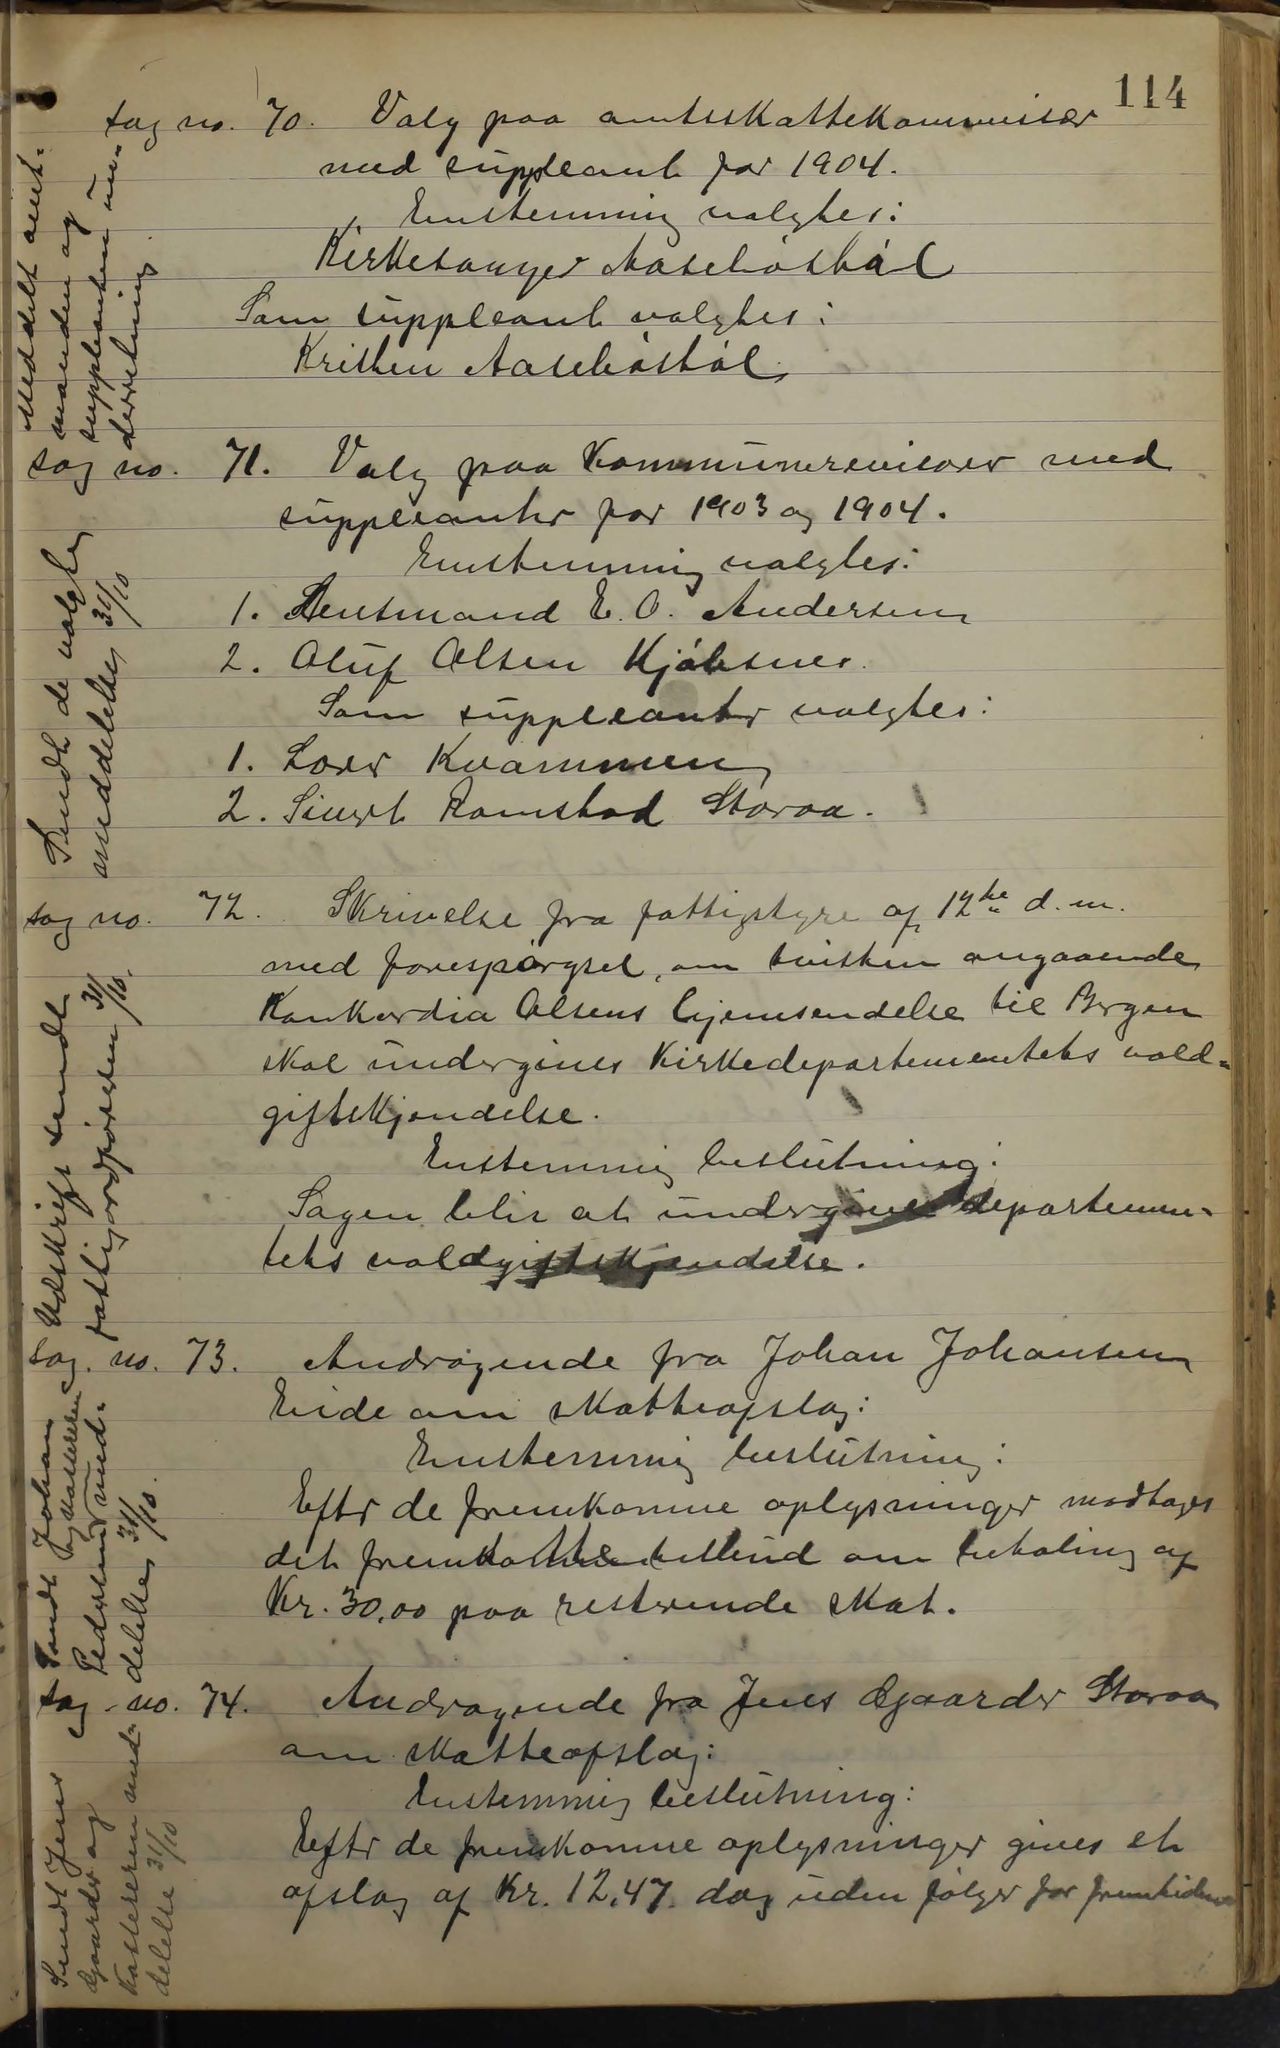 114
sag no. 70. Valg paa amtsskattekommisær
med suppleant for 1904.
Enstemmig valgtes:
Kirkesanger
Som suppleant valgtes:
Kristen
Meddelt amt-
manden og
suppleanten un-
derretning
sag no. 71. Valg paa Kommunerevisorer med
suppleanter for 1903 og 1904.
Enstemmig valgtes:
1. Lensmand E. O. Andersen
2. Oluf Olsen Kjølsnes.
Som suppleanter valgtes:
1. Lars Kvammen
2. Sivert Ramstad Storaa.
Sendt de valgte
meddelelse 31/10
sag no. 72. Skrivelse fra fattigstyre af 12te d.m.
med forespørgsel, om tvisten angaaende
Konkordia Olsens hjemsendelse til Bergen
skal undergives Kirkedepartementets vold-
giftskjendelse.
Enstemmig beslutning:
Sagen blir at undergives departemen-
tets voldgiftskjendelse.
Udskrift sendt
fattigordføreren 31/10.
sag. no. 73. Andragende fra Johan Johansen
Eide om skatteafslag:
Enstemmig beslutning:
Efter de fremkomne oplysninger modtages
det fremkomne tilbud om betaling af
Kr. 30,00 paa resterende skat.
Sendt Johan
Pedersen med-
og kassereren
delelse 31/10.
sag. no. 74. Andragende fra Jens Øgaarder Storaa
om skatteafslag:
Enstemmig beslutning:
Efter de fremkomne oplysninger gives et
afslag af Kr. 12,47. dog uden følger for fremtiden
Sendt Jens
Øgaarder og
Kassereren med-
delelse 31/10